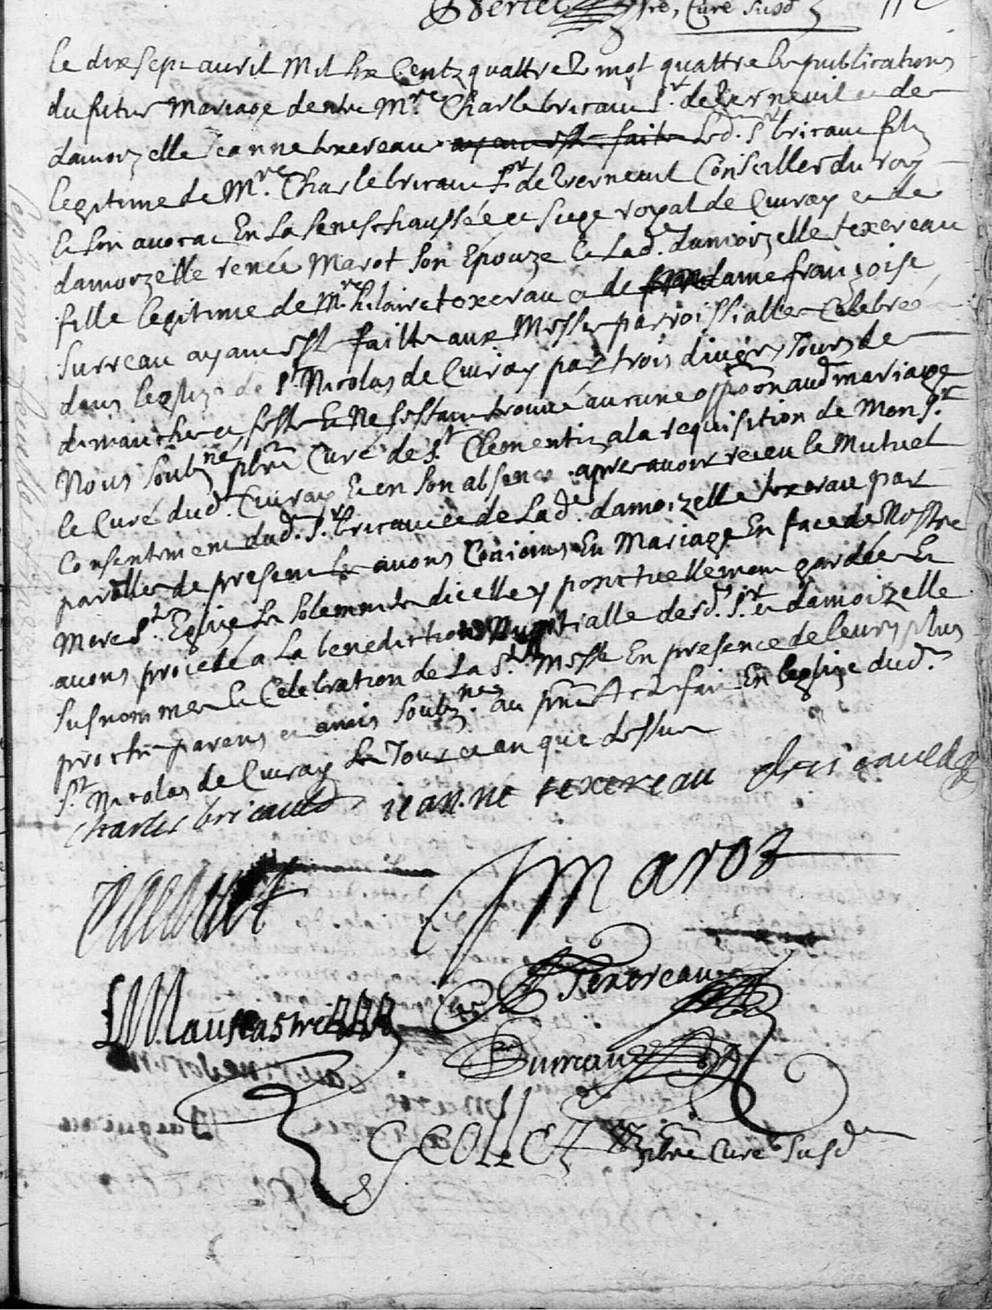 ptre, Curé susd
Le dix sept auril Mil six Centz quattre Vingt quattre les publications
du futur Mariage dentre Mre Charle bricaud Sr de Verneuil et de
damoizelle Jeanne texereau ayant esté faite Led. Sr bricaud filz
legitime de Mre Charle bricaud Sr de Verneuil Conseiller du roy
et son auocat En La seneschaussée et siege royal de Ciuray et de
damoizelle renée Marot son Épouze et Lad. damoizelle texereau
fille legitime de Mre hilaire texerau et de dame françoise
surreau ayant esté faitte aux Messes parroissialles Celebré
dans leglize de St Nicolas de Ciuray par trois diuers Jours de
dimanches et feste Et Ne sestant trouué aucune opposõn aud mariage
Nous soubzne pbre Curé de St Clementin a la requisition de Monsr
le Curé dud. Ciuray Et en son absence apres auoir receu le Mutuel
Consentement dud. Sr bricaud et de Lad. damoizelle texerau par
parolles de present Les auons Conioins En Mariage En face de Nostre
Mere Ste Eglise Les solemnités dicelle y ponctuellement gardées Et
auons procédé a La benediction Nuptialle desd. Sr et damoizelle
susnommes et Celebration de La Ste Messe En presence de leurs plus
proche parens et amis soubznes au pnt Acte fait En leglize dud.
St Nicolas de Ciuray Les Jour et an que dessus
Charles bricauld jeanne texereau bricauld
Marot
Texereau
Dumau
Collet pbre Curé susd